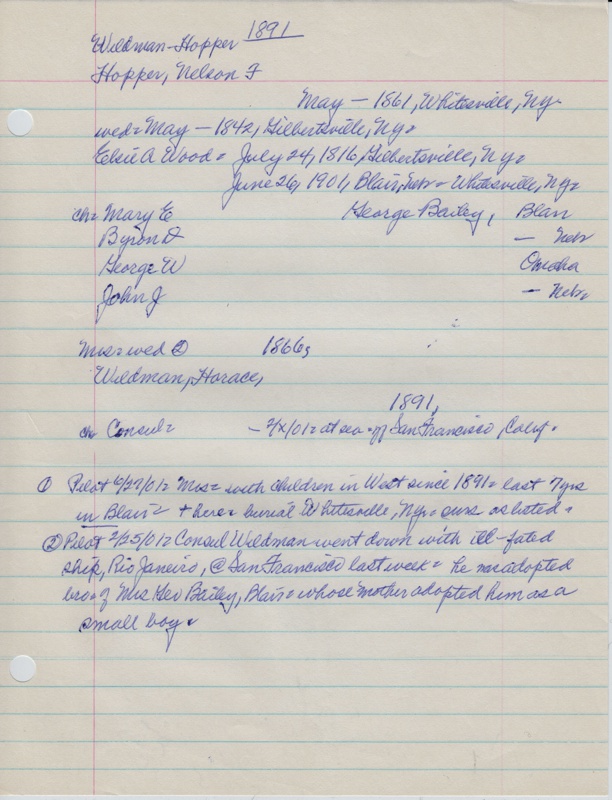 Wildman-Hopper 1891
Hopper, Nelson F
May — 1861, Whitesville, Ny-
wed = May — 1842, Gilbertsville, Ny=
Elsie A Wood = July 24, 1816, Gilbertsville, Ny=
June 26, 1901, Blair, Nebr = Whitesville, Ny=
ch = Mary E George Bailey, Blair
Byron D — Nebr
George W Omaha
John J — Nebr
Mrs = wed ② 1866;
Wildman, Horace, 1891,
ch Consul = - 2/x/01 = at sea = off San Francisco, Calif.
① Pilot 6/27/01 = Mrs = with children in West since 1891 = last 7 yrs
in Blair = + here = burial Whitesville, Ny = surs as listed =
② Pilot 2/25/01 = Consul Wildman went down with ill-fated
ship, Rio Janeiro, @ San Francisco last week = he was adopted
bro = of Mrs Geo Bailey, Blair = whose mother adopted him as a
small boy.